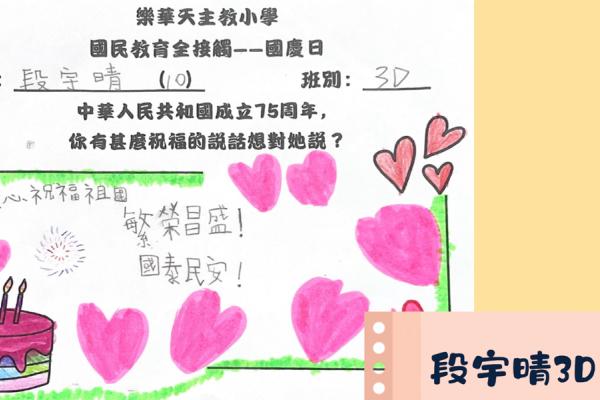 樂華天主教小學
國民教育全接觸——國慶日
: 段宇晴 (10) 班別: 3D
中華人民共和國成立75周年，
你有甚麼祝福的說話想對她說？
心祝福祖國
繁榮昌盛!
國泰民安!
段宇晴3D